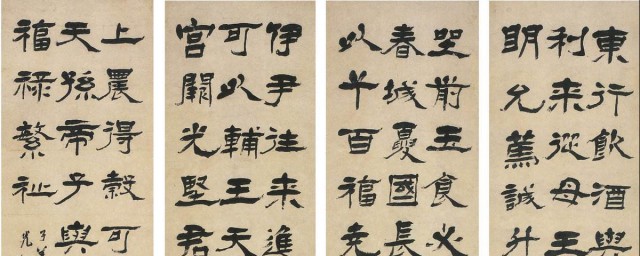 東行飲酒與
利來從母王
明允篤誠升
坐前五食必
春城國長
以千百福
伊尹往來進
可以輔王天
宮闕光堅君
上農得穀可
天孫帝子與
福祿繁祉